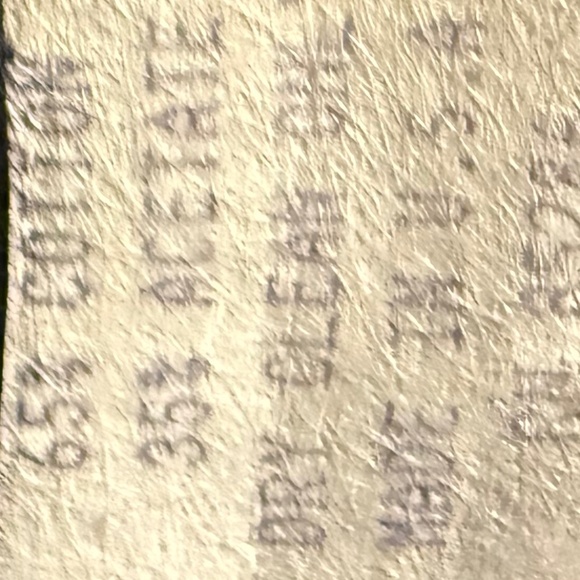 65% COTTON
35% ACETATE
DRY CLEAN ONLY
MADE IN U.S.A.